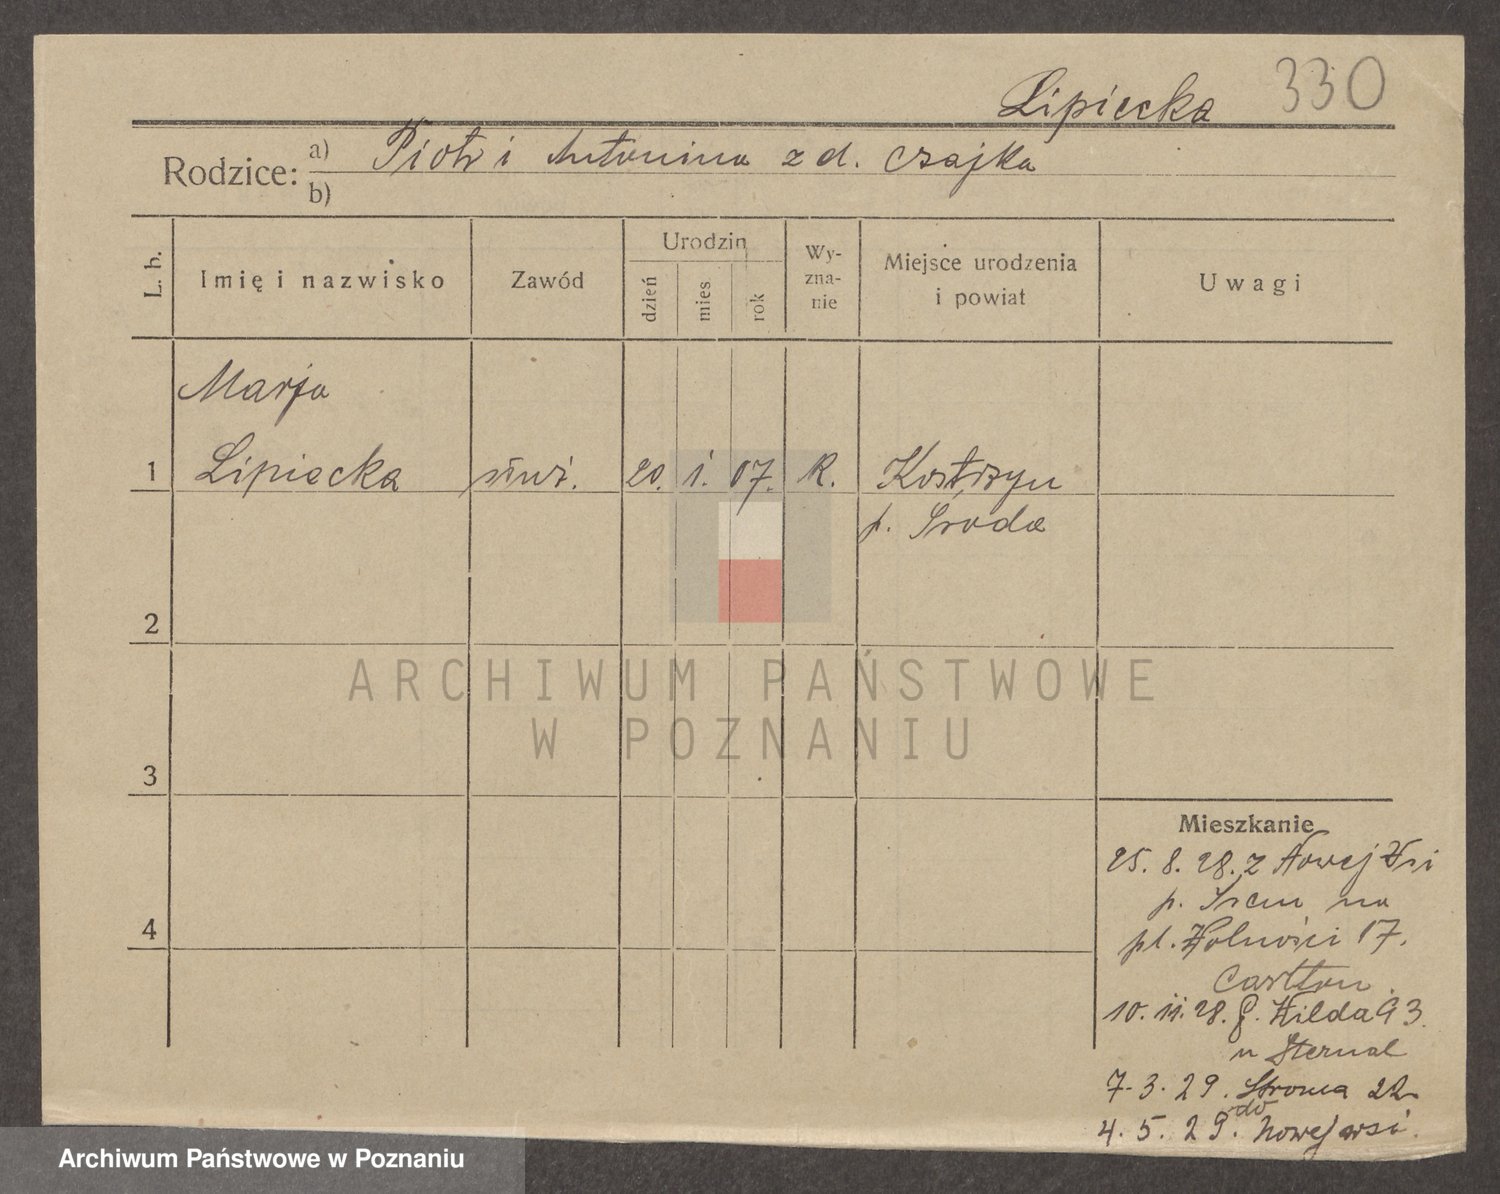 Lipiecka 330
Rodzice: a) Piotr i Antonina z d. Czajka
b)
L. b.
Imię i nazwisko
Zawód
Urodzin
dzień
mies
rok
Wy-
zna-
nie
Miejsce urodzenia
i powiat
Uwagi
Marja
1 Lipiecka służ. 20. 1. 07. R. Kostrzyn
p. Środa
2
3
4
Mieszkanie
25. 8. 28. z Nowej Wsi
p. Śrem na
pl. Wolności 17.
Carlton.
10. 11. 28. G. Wilda 93.
u Sternal
7. 3. 29. Stroma 22
4. 5. 29. do Nowej wsi.
ARCHIWUM PAŃSTWOWE
W POZNANIU
Archiwum Państwowe w Poznaniu